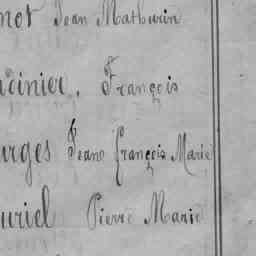 not Jean Mathurin
cinier, François
urges Jean françois Marie
uriel Pierre Marie